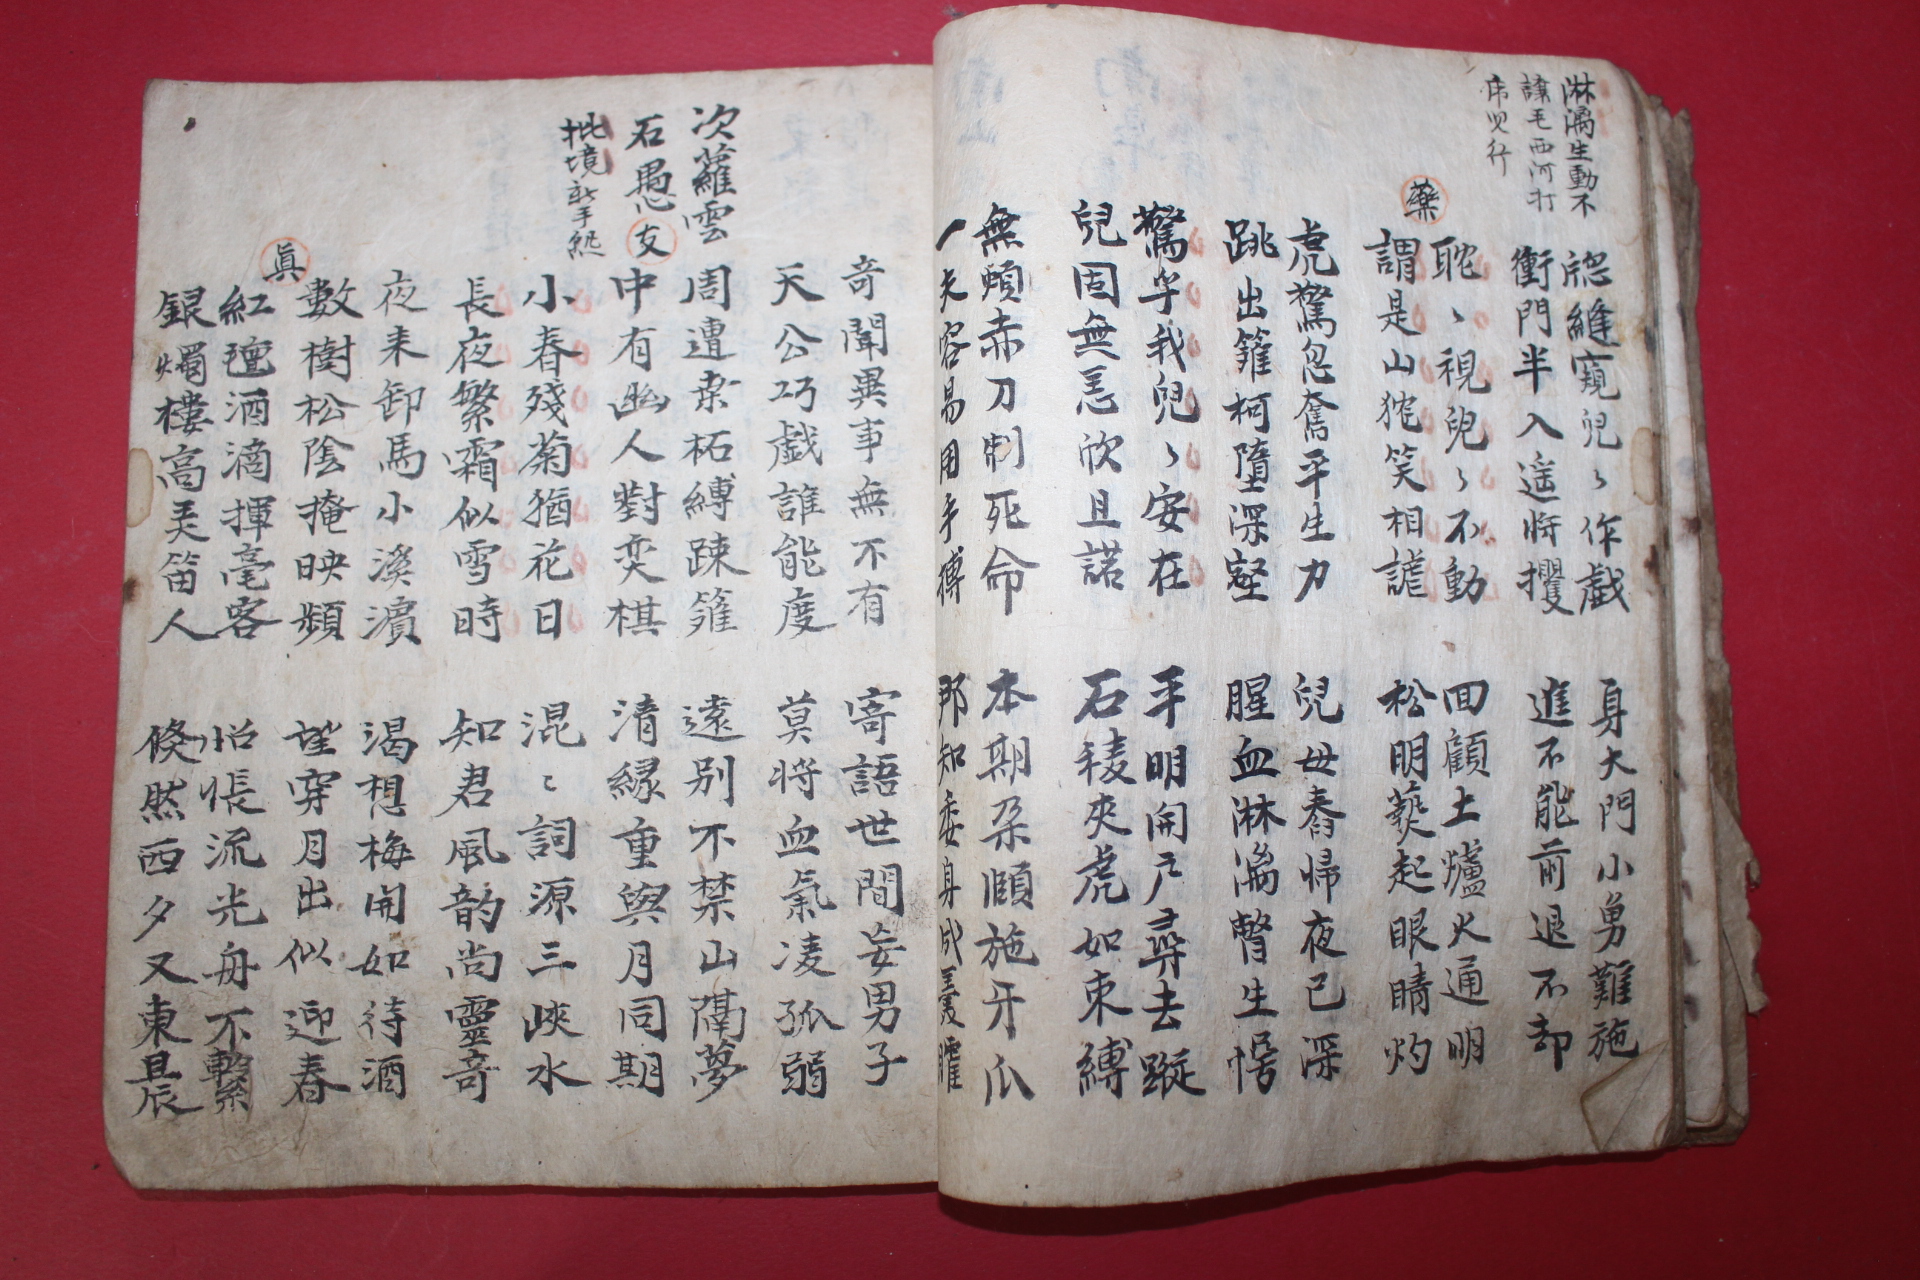 淋漓生動不
讓毛西河打
虎兒行
窓縫窺兒〻作戱
身大門小勇難施
衝門半入遙將攫
進不能前退不却
耽〻視兒〻不動
回顧土爐火通明
藥
謂是山狵笑相謔
松明爇起眼睛灼
虎驚忽奮平生力
兒母舂歸夜已深
跳出籬柯墮深壑
腥血淋漓瞥生愕
驚呼我兒〻安在
平明開戶尋去蹤
兒固無恙欣且諾
石稜夾虎如束縛
無煩赤刀制死命
本期朶頤施牙爪
一夫容易用手搏
那知委身成羹臛
奇聞異事無不有
寄語世間妄男子
天公巧戱誰能度
莫將血氣凌孤弱
次蘿雲
周遭棗柘縛踈籬
遠別不禁山隔夢
石愚友
中有幽人對奕棋
清緣重與月同期
小春殘菊猶花日
混〻詞源三峽水
長夜繁霜似雪時
知君風韵尚靈奇
夜来卸馬小溪濱
渴想梅開如待酒
數樹松陰掩映頻
望穿月出似迎春
眞
紅氍酒滴揮毫客
怊悵流光舟不繫
銀燭樓高弄笛人
倏然西夕又東晨